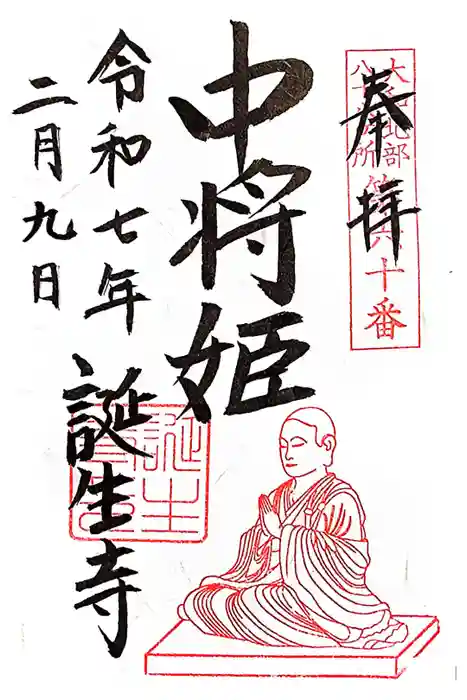 奉拝
大和北部
八十八ヶ所
第六十番
中将姫
令和七年
二月九日
誕生寺
誕生寺